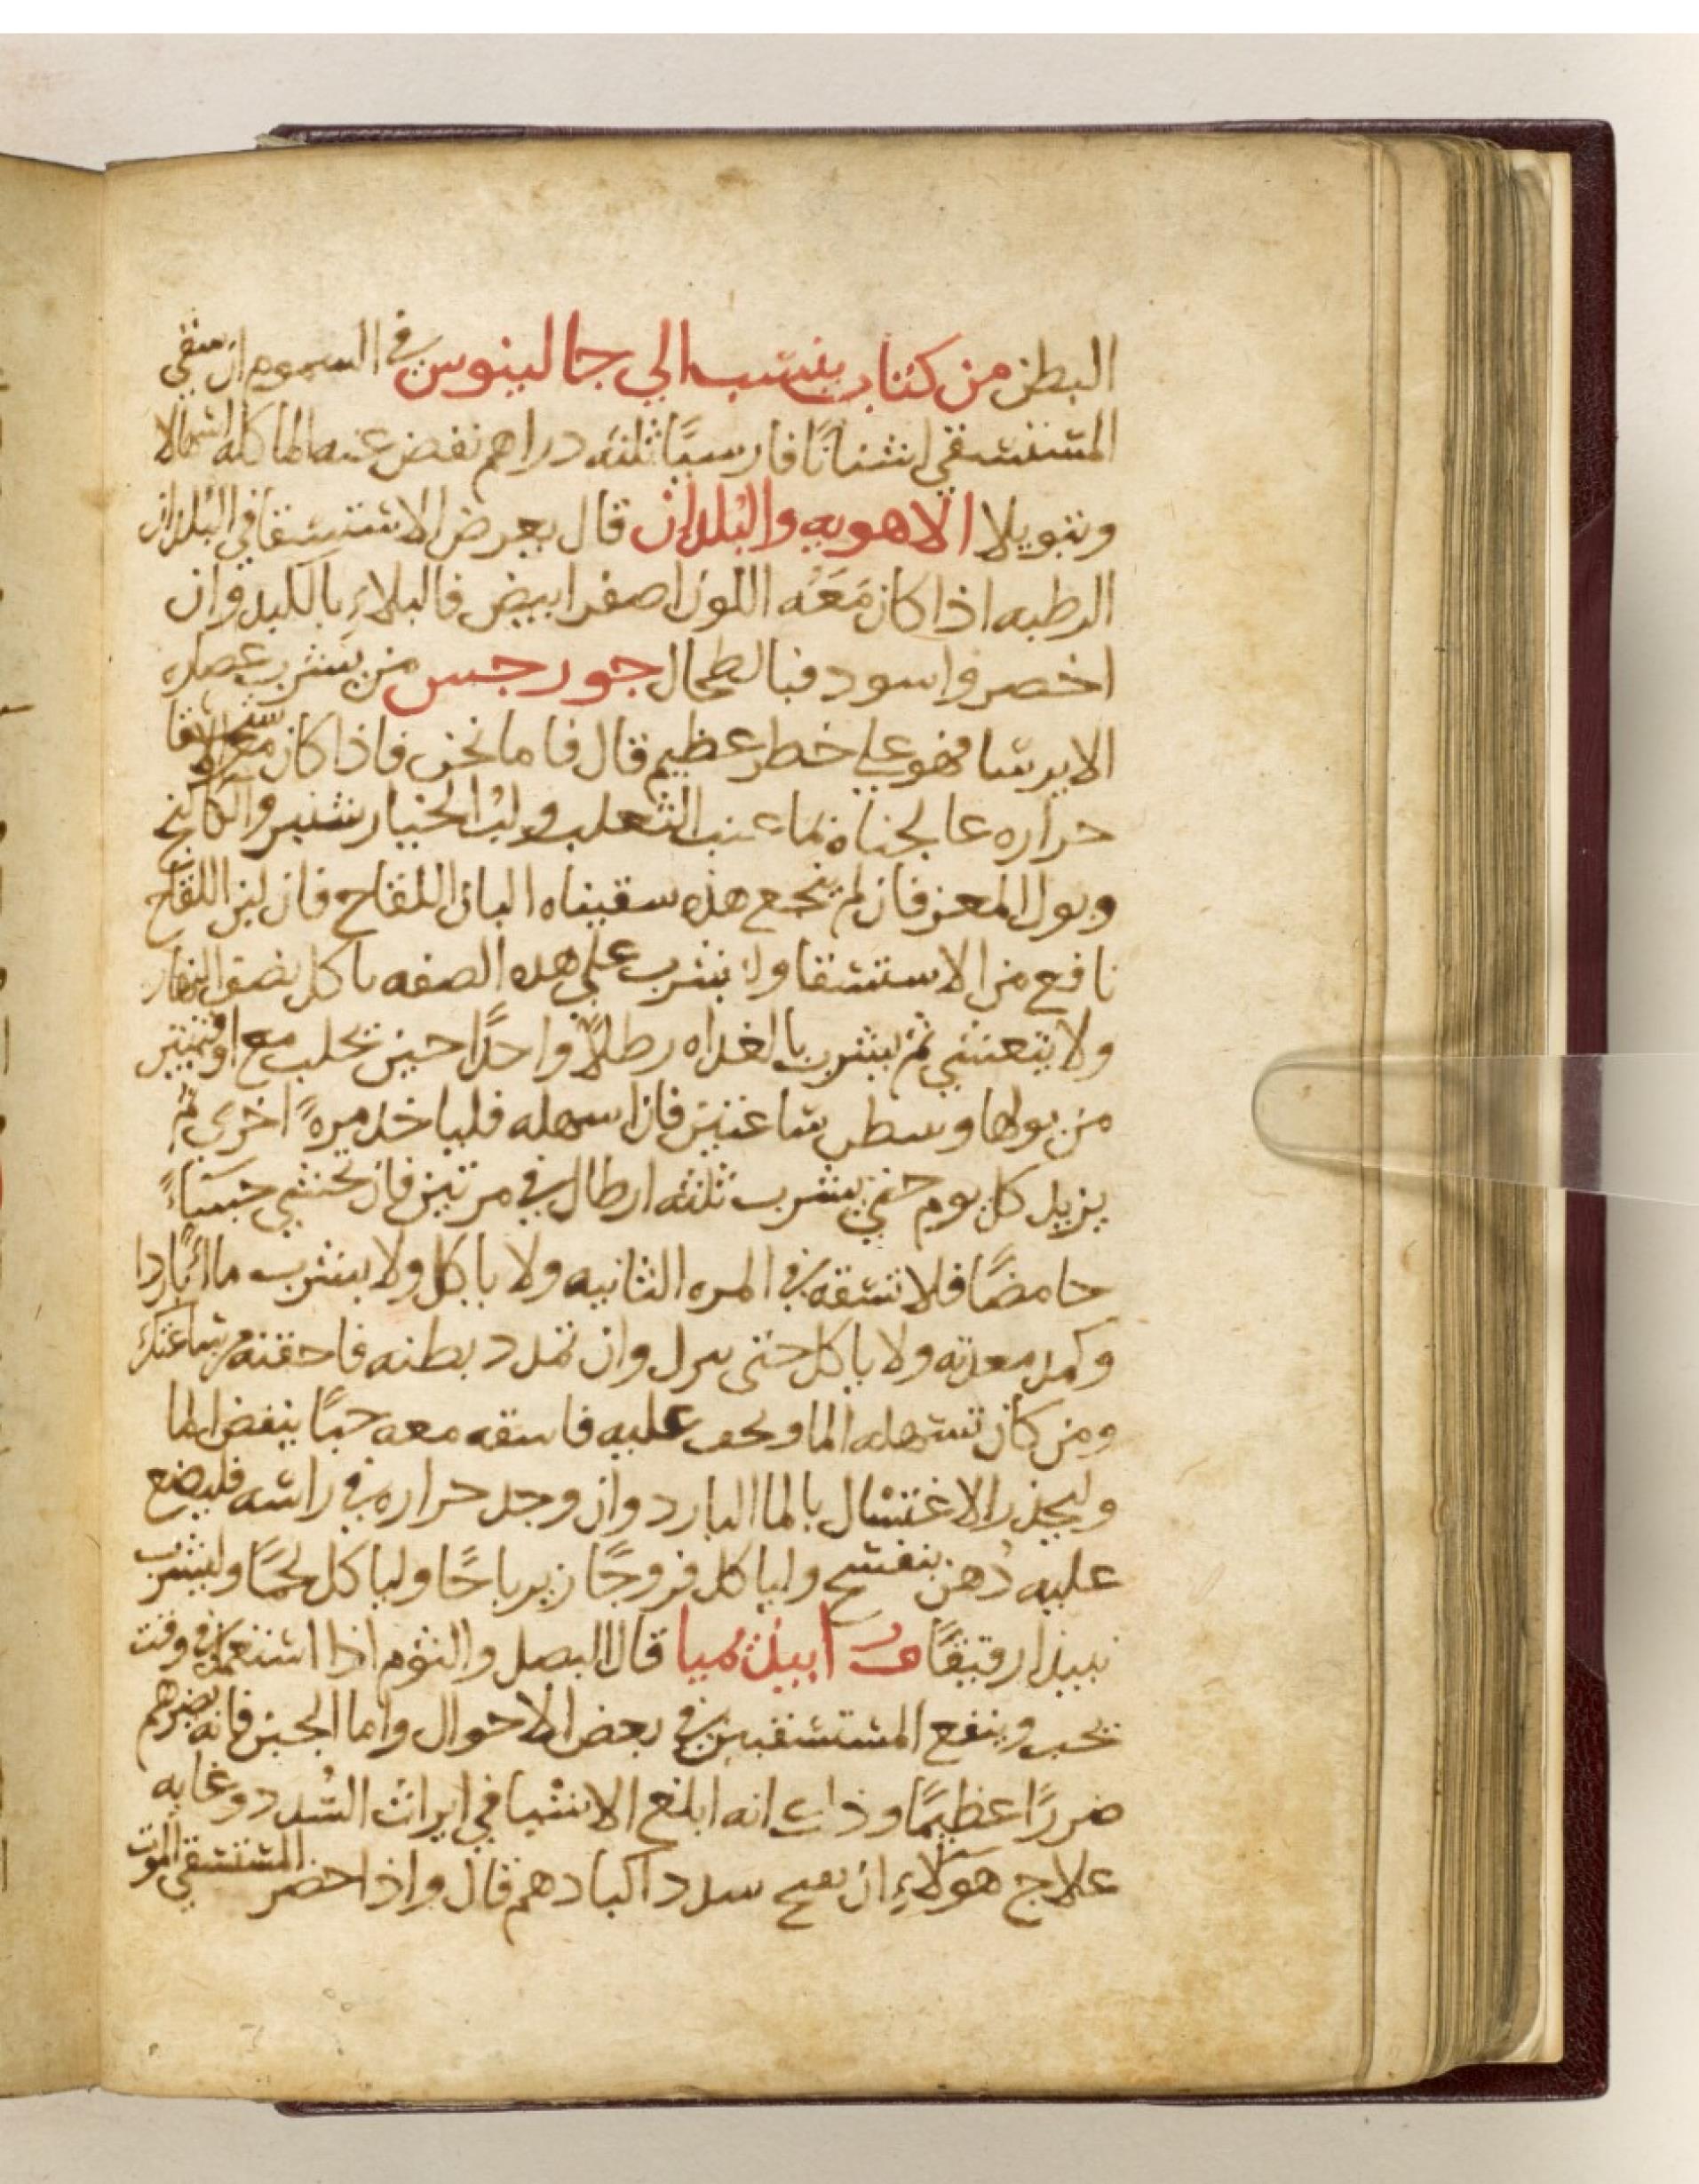 البطن من كتاب ينسب الي جالينوس في السموم ان سقي
المستسقي اشنانًا فارسيًا ثلثه دراهم نفض عنه الما كله اسهالا
وتبويلا الاهويه والبُلدان قال يعرض الاستسقا في البُلدان
الرطبه اذا كان مَعَه اللون اصفر ابيض فالبلاءِ بالكبد وان
اخضر واسود فبالطحال جورجس من يشرب عصاره
الايرسا فهو علي خطر عظيم قال فاما نحن فاذا كان مع الاستسقا
حراره عالجناه بما عنب الثعلب ولبُ الخيارشنبر والكاكنج
وبول المعز فان لم ينجع هذه سقيناه البان اللقاح فان لبن اللقاح
نافع من الاستسقا وان يشرب علي هذه الصفه ياكل نصف النهار
ولا يتعشي ثم يشرب بالغداه رطلًا واحدًا حين يحلب مع اوقيتين
من بولها وسطر ساعتين فان اسهله فلياخذ مرهً اخري ثم
يزيد كل يوم حتي يشرب ثلثه ارطال في مرتين فان تجشي جشاءً
حامضًا فلا تسقه في المره الثانيه ولا ياكل ولا يشرب ماءً باردا
وكمد معدته ولا ياكل حتى ينزل وان تمدد بطنه فاحقنه من ساعتك
ومن كان تسهله الما ويخف عليه فاسقه معه حبًا ينفض الما
وليحذر الاغتسال بالما البارد وان وجد حراره في راسه فليضع
عليه دُهن بنفسج ولياكل فروجًا زيرباجًا ولياكل لحمًا وليشرب
نبيذا رقيقًا ابيذميا قال البصل والثوم اذا استعمل في وقت
يحب وينفع المستسقيين في بعض الاحوال واما الجبن فانه يضرهم
ضررًا عظيمًا وذلك انه ابلغ الاشيا في ايراث السُدد وغايه
علاج هَوُلاءِ ان تفتح سدد اكبادهم قال واذا حضر المستسقي الموت